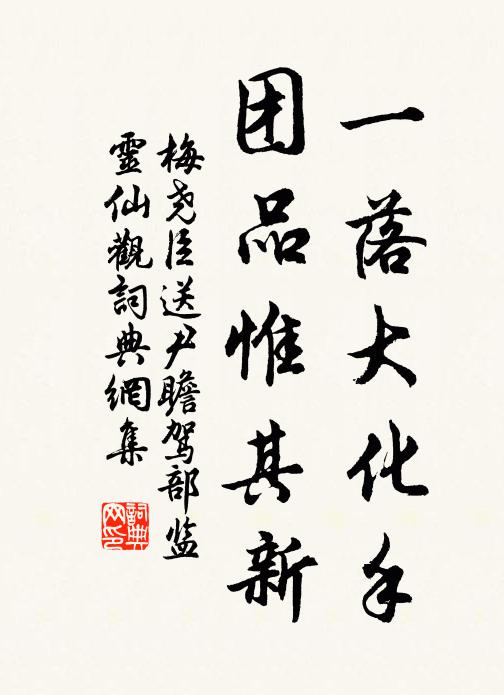 一落大化手
团品惟其新
梅尧臣送尹瞻驾部监
靈仙觀詞典網集
詞典網印